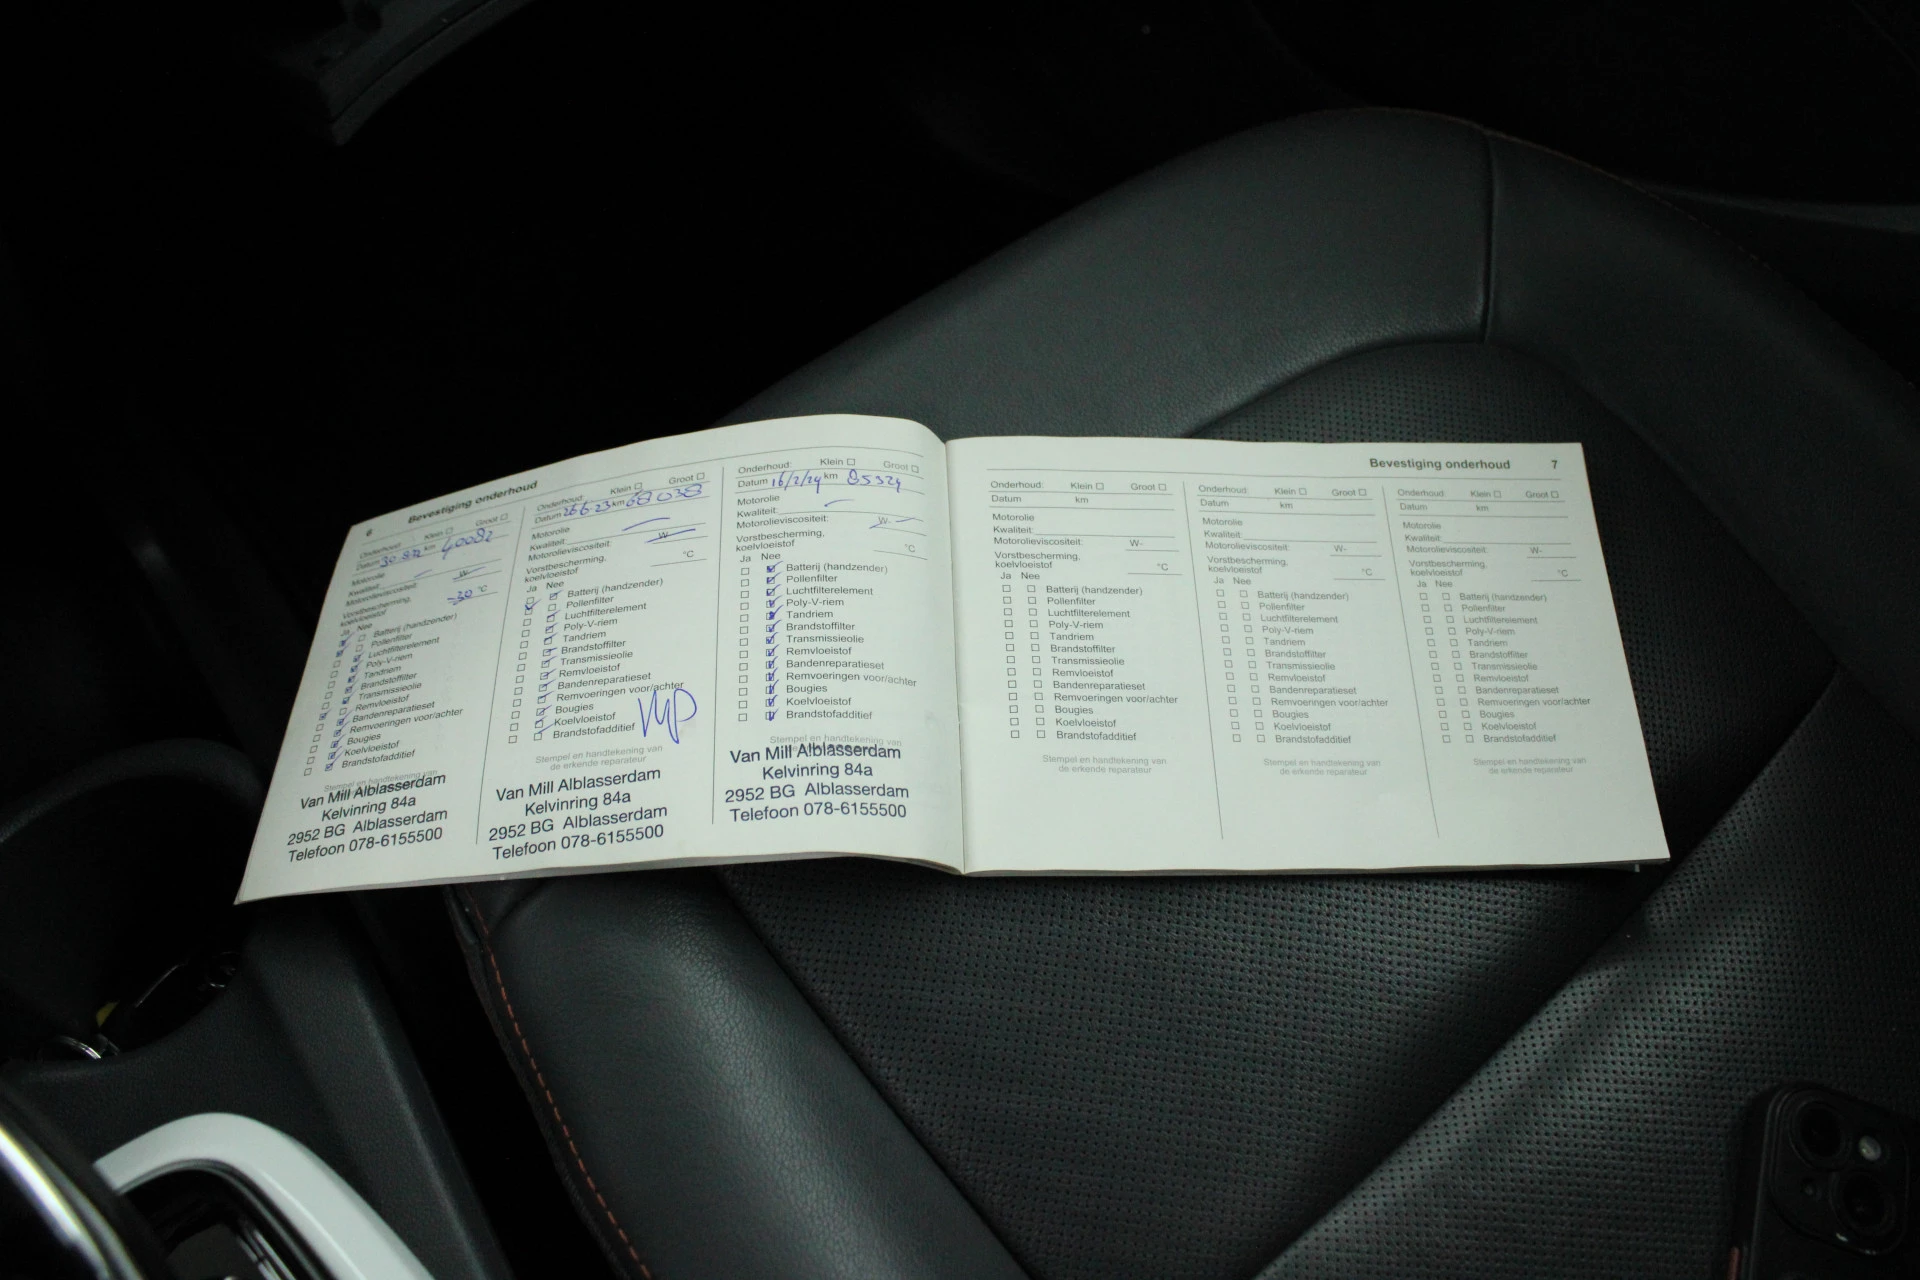 6 Bevestiging onderhoud
Onderhoud: Klein Groot
Datum 30.8.22 km 40082
Motorolie
Kwaliteit:
Motorolieviscositeit: W-
Vorstbescherming,
koelvloeistof -30 °C
Ja Nee
Batterij (handzender)
Pollenfilter
Luchtfilterelement
Poly-V-riem
Tandriem
Brandstoffilter
Transmissieolie
Remvloeistof
Bandenreparatieset
Remvoeringen voor/achter
Bougies
Koelvloeistof
Brandstofadditief
Stempel en handtekening van
Van Mill Alblasserdam
Kelvinring 84a
2952 BG Alblasserdam
Telefoon 078-6155500
Onderhoud: Klein Groot
Datum 26 6.23 km 68038
Motorolie
Kwaliteit:
Motorolieviscositeit: W-
Vorstbescherming,
koelvloeistof °C
Ja Nee
Batterij (handzender)
Pollenfilter
Luchtfilterelement
Poly-V-riem
Tandriem
Brandstoffilter
Transmissieolie
Remvloeistof
Bandenreparatieset
Remvoeringen voor/achter
Bougies
Koelvloeistof
Brandstofadditief
Stempel en handtekening van
de erkende reparateur
Van Mill Alblasserdam
Kelvinring 84a
2952 BG Alblasserdam
Telefoon 078-6155500
Onderhoud: Klein Groot
Datum 16/2/24 km 85324
Motorolie
Kwaliteit:
Motorolieviscositeit: W-
Vorstbescherming,
koelvloeistof °C
Ja Nee
Batterij (handzender)
Pollenfilter
Luchtfilterelement
Poly-V-riem
Tandriem
Brandstoffilter
Transmissieolie
Remvloeistof
Bandenreparatieset
Remvoeringen voor/achter
Bougies
Koelvloeistof
Brandstofadditief
Stempel en handtekening van
Van Mill Alblasserdam
Kelvinring 84a
2952 BG Alblasserdam
Telefoon 078-6155500
Bevestiging onderhoud 7
Onderhoud: Klein Groot
Datum km
Motorolie
Kwaliteit:
Motorolieviscositeit: W-
Vorstbescherming,
koelvloeistof °C
Ja Nee
Batterij (handzender)
Pollenfilter
Luchtfilterelement
Poly-V-riem
Tandriem
Brandstoffilter
Transmissieolie
Remvloeistof
Bandenreparatieset
Remvoeringen voor/achter
Bougies
Koelvloeistof
Brandstofadditief
Stempel en handtekening van
de erkende reparateur
Onderhoud: Klein Groot
Datum km
Motorolie
Kwaliteit:
Motorolieviscositeit: W-
Vorstbescherming,
koelvloeistof °C
Ja Nee
Batterij (handzender)
Pollenfilter
Luchtfilterelement
Poly-V-riem
Tandriem
Brandstoffilter
Transmissieolie
Remvloeistof
Bandenreparatieset
Remvoeringen voor/achter
Bougies
Koelvloeistof
Brandstofadditief
Stempel en handtekening van
de erkende reparateur
Onderhoud: Klein Groot
Datum km
Motorolie
Kwaliteit:
Motorolieviscositeit: W-
Vorstbescherming,
koelvloeistof °C
Ja Nee
Batterij (handzender)
Pollenfilter
Luchtfilterelement
Poly-V-riem
Tandriem
Brandstoffilter
Transmissieolie
Remvloeistof
Bandenreparatieset
Remvoeringen voor/achter
Bougies
Koelvloeistof
Brandstofadditief
Stempel en handtekening van
de erkende reparateur